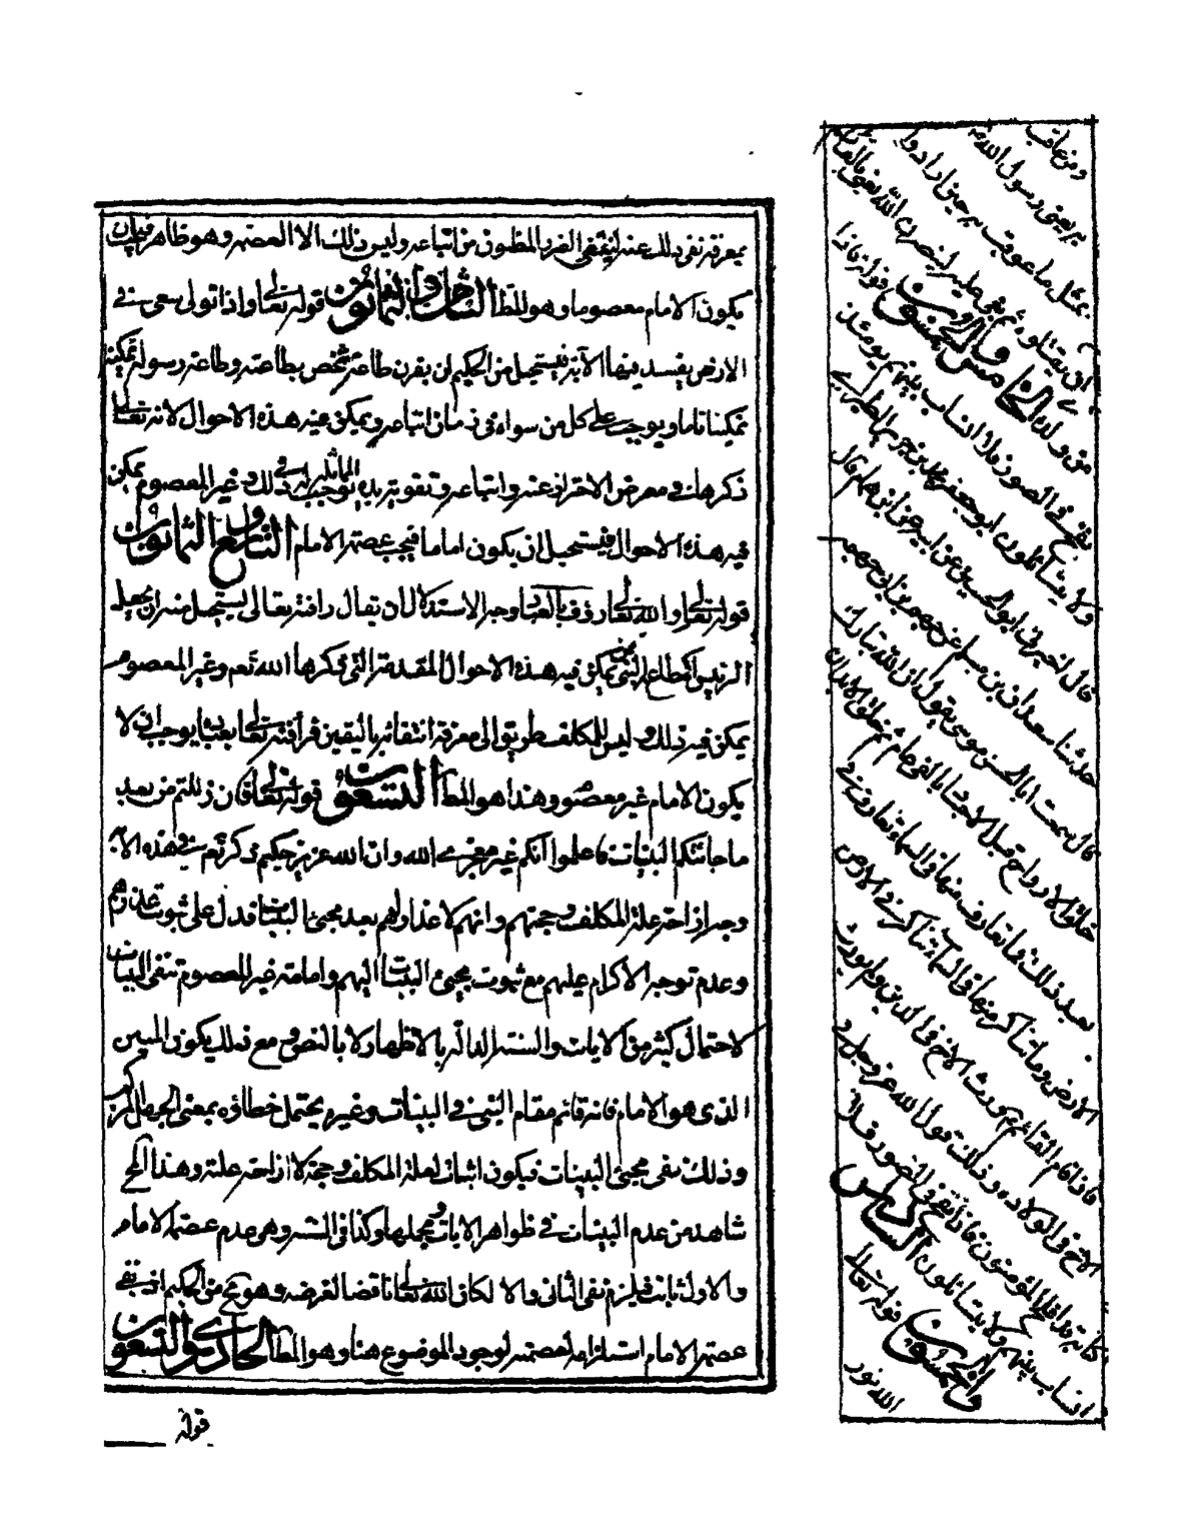 بمعرفته نفى ذلك عنه لينتفى الضرر المظنون من اتباعه وليس ذلك الا العصمة وهو ظاهر فيجب ان
يكون الامام معصوما وهو المط الثامن والثمانون قوله تعالى واذا تولى سعى فى
الارض ليفسد فيها الآية فيستحيل من الحكيم ان يقرن طاعة شخص بطاعته وطاعة رسوله تمكينه
تمكينا تاما ويوجب على كل من سواه فى زمان اتباعه ويمكن فيه هذه الاحوال لانه تعالى
ذكرها فى معرض الاحتراز عنه واتباعه وتقويته يده فى ذلك وغير المعصوم يمكن
فيه هذه الاحوال فيستحيل ان يكون اماما فيجب عصمة الامام التاسع والثمانون
قوله تعالى والله رؤف بالعباد وجه الاستدلال ان يقال رافته تعالى يستحيل منه ان يجعل
الرئيس المطاع الذى يمكن فيه هذه الاحوال المقدمة التى ذكرها الله تعم وغير المعصوم
يمكن فيه ذلك وليس للمكلف طريق الى معرفة انتفائه باليقين فرأفته تعالى بعباده يوجب ان لا
يكون الامام غير معصوم وهذا هو المط التسعون قوله تعالى فان زللتم من بعد
ما جائتكم البينات فاعلموا انكم غير معجزى الله وان الله عزيز حكيم ذكر تعم فى هذه الآية
وجه ازاحة علة المكلف وحجتهم وانهم لا عذر لهم بعد مجئ البينات فدل على ثبوت عذرهم
وعدم توجه الاكرام عليهم مع ثبوت مجئ البينات اليهم وامامة غير المعصوم تنفى البينات
لاحتمال كثير من الايات والسنة الدالة بالاظهار لا بالنصوص مع ذلك يكون المبين
الذى هو الامام فانه قائم مقام النبى فى البينات وغيره يحتمل خطاؤه بمعنى الجهل المركب
وذلك ينفى مجئ البينات فيكون اثباتا لعلة المكلف وحجة لا ازاحة علته وهذا المح
شاهد من عدم البينات فى ظواهر الايات ومجملها وكذا فى السنة وهى عدم عصمة الامام
والاول ثابت فيلزم نفى الثانى والا لكان الله تعالى ناقضا لغرضه وهو مح من الحكيم اذ نفى
عصمة الامام استلزامه لعصمته لوجود الموضوع هنا وهو المط الحادى والتسعون
قوله
ومن عاقب
بمثل ما عوقب به
يعنى رسول الله
حين ارادوا
ان يقتلوه ثم بغى عليه لينصرنه الله يعنى بالقائم
من ولده الخامس والخمسون قوله فاذا
نفخ فى الصور فلا انساب بينهم يومئذ
ولا يتسائلون ابو جعفر محمد بن جرير الطبرى
قال اخبرنى ابو الحسين عن ابيه عن ابن همام قال
حدثنا سعدان بن مسلم عن جهم بن ابى جهمة
قال سمعت ابا الحسن موسى يقول ان الله تبارك
خلق الارواح قبل الاجساد بالفى عام ثم خلق الابدان
بعد ذلك فما تعارف منها فى السماء تعارف فى
الارض وما تناكر منها فى السماء تناكر فى الارض
فاذا قام القائم يورث الاخ فى الدين ولم يورث
الاخ فى الولادة وذلك قول الله عز وجل فى
كتابه قد افلح المؤمنون فاذا نفخ فى الصور فلا
انساب بينهم ولا يتسائلون السادس
والخمسون قوله تعالى
الله نور